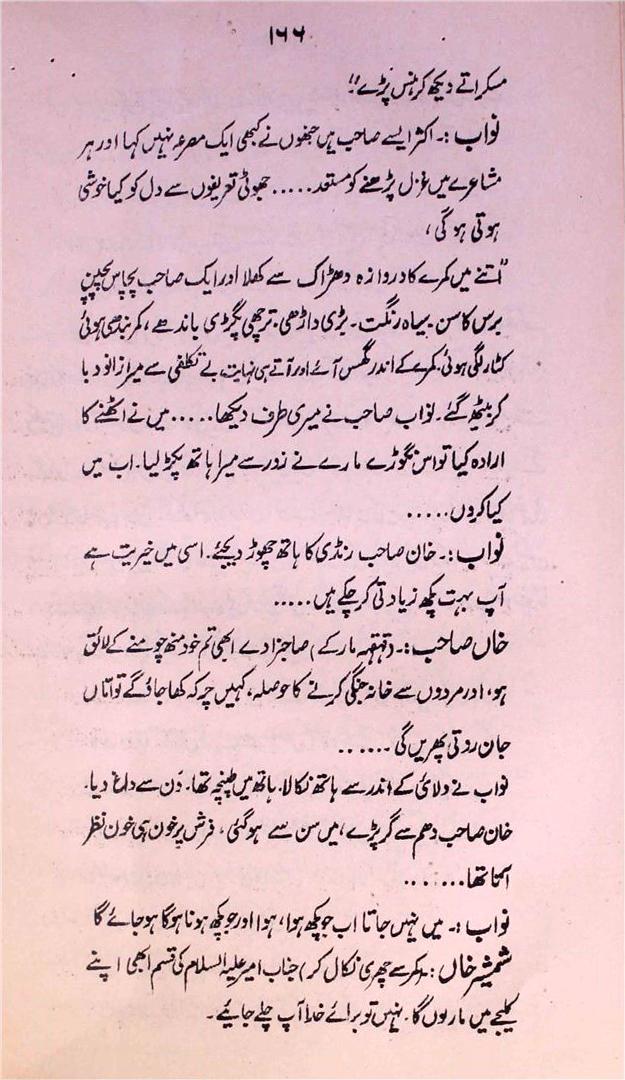 ۱۶۶
مسکراتے دیکھ کر ہنس پڑے"
نواب :۔ اکثر ایسے صاحب ہیں جنھوں نے کبھی ایک مصرعہ نہیں کہا اور ہر
مشاعرے میں غزل پڑھنے کو مستعد ..... جھوٹی تعریفوں سے دل کو کیا خوشی
ہوتی ہوگی،
"اتنے میں کمرے کا دروازہ دھڑاک سے کھلا اور ایک صاحب پچاس پچپن
برس کا سن۔ سیاہ رنگت۔ بڑی داڑھی۔ ترچھی پگڑی باندھے، کمر بندھی ہوئی
کٹار لگی ہوئی۔ کمرے کے اندر گھس آئے اور آتے ہی نہایت بے تکلفی سے میرا زانو دبا
کر بیٹھ گئے۔ نواب صاحب نے میری طرف دیکھا ..... میں نے اٹھنے کا
ارادہ کیا تو اس نگوڑے مارے نے زور سے میرا ہاتھ پکڑ لیا۔ اب میں
کیا کروں .....
نواب :۔ خان صاحب رنڈی کا ہاتھ چھوڑ دیجئے۔ اسی میں خیریت ہے
آپ بہت کچھ زیادتی کر چکے ہیں .....
خاں صاحب :۔ (قہقہہ مار کے) صاحبزادے ابھی تم خود منھ چومنے کے لائق
ہو، اور مردوں سے خانہ جنگی کرنے کا حوصلہ، کہیں چرکہ کھا جاؤ گے تو اماں
جان روتی پھریں گی .....
نواب نے دلائی کے اندر سے ہاتھ نکالا۔ ہاتھ میں طپنچہ تھا۔ دَن سے داغ دیا۔
خان صاحب دھم سے گر پڑے، میں سن سے ہوگئی، فرش پر خون ہی خون نظر
آتا تھا ......
نواب :۔ میں نہیں جاتا اب جو کچھ ہوا، ہوا اور جو کچھ ہونا ہوگا ہو جائے گا
شمشیر خاں :۔ (کمر سے چھری نکال کر) جناب امیر علیہ السلام کی قسم ابھی اپنے
کلیجے میں ماروں گا۔ نہیں تو برائے خدا آپ چلے جائیے۔